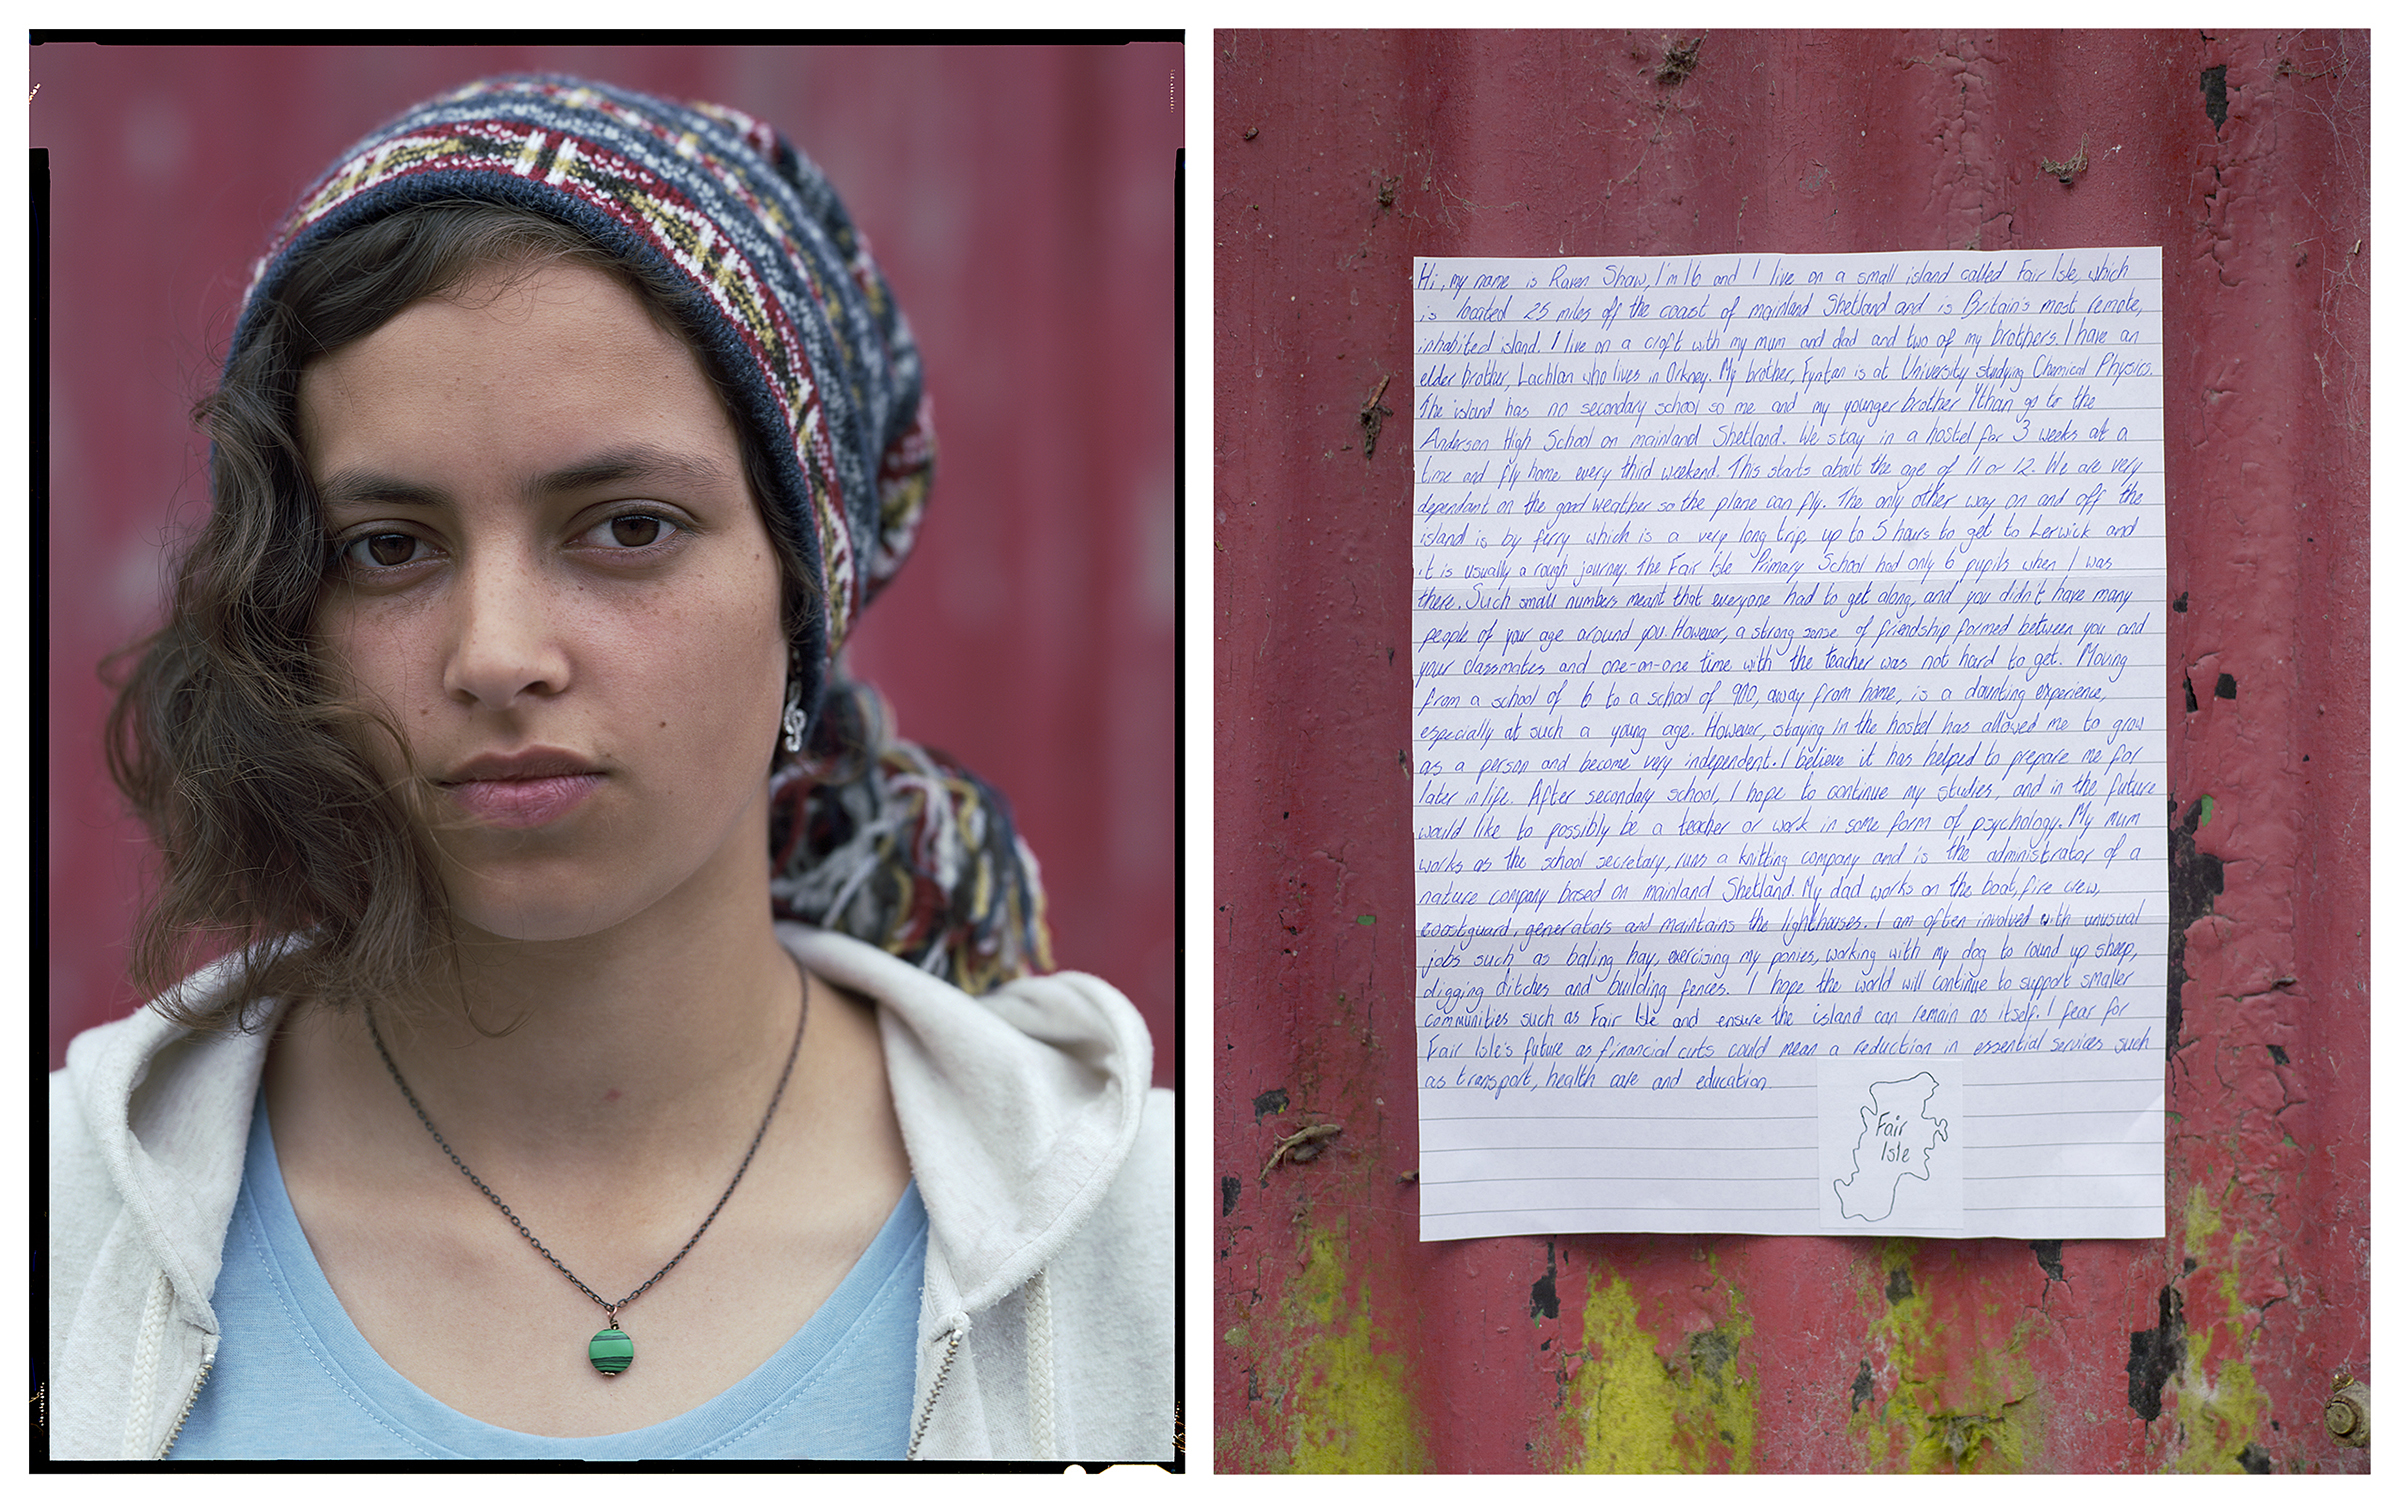 Hi, my name is Raven Shaw, I'm 16 and I live on a small island called Fair Isle, which
is located 25 miles off the coast of mainland Shetland and is Britain's most remote,
inhabited island. I live on a croft with my mum and dad and two of my brothers. I have an
elder brother, Lachlan who lives in Orkney. My brother, Fyntan is at University studying Chemical Physics.
The island has no secondary school so me and my younger brother Ythan go to the
Anderson High School on mainland Shetland. We stay in a hostel for 3 weeks at a
time and fly home every third weekend. This starts about the age of 11 or 12. We are very
dependant on the good weather so the plane can fly. The only other way on and off the
island is by ferry which is a very long trip, up to 5 hours to get to Lerwick and
it is usually a rough journey. The Fair Isle Primary School had only 6 pupils when I was
there. Such small numbers meant that everyone had to get along, and you didn't have many
people of your age around you. However, a strong sense of friendship formed between you and
your classmates and one-on-one time with the teacher was not hard to get. Moving
from a school of 6 to a school of 910, away from home, is a daunting experience,
especially at such a young age. However, staying in the hostel has allowed me to grow
as a person and become very independent. I believe it has helped to prepare me for
later in life. After secondary school, I hope to continue my studies, and in the future
would like to possibly be a teacher or work in some form of psychology. My mum
works as the school secretary, runs a knitting company and is the administrator of a
nature company based on mainland Shetland. My dad works on the boat, fire crew,
coastguard, generators and maintains the lighthouses. I am often involved with unusual
jobs such as baling hay, exercising my ponies, working with my dog to round up sheep,
digging ditches and building fences. I hope the world will continue to support smaller
communities such as Fair Isle and ensure the island can remain as itself. I fear for
Fair Isle's future as financial cuts could mean a reduction in essential services such
as transport, health care and education.
Fair
Isle